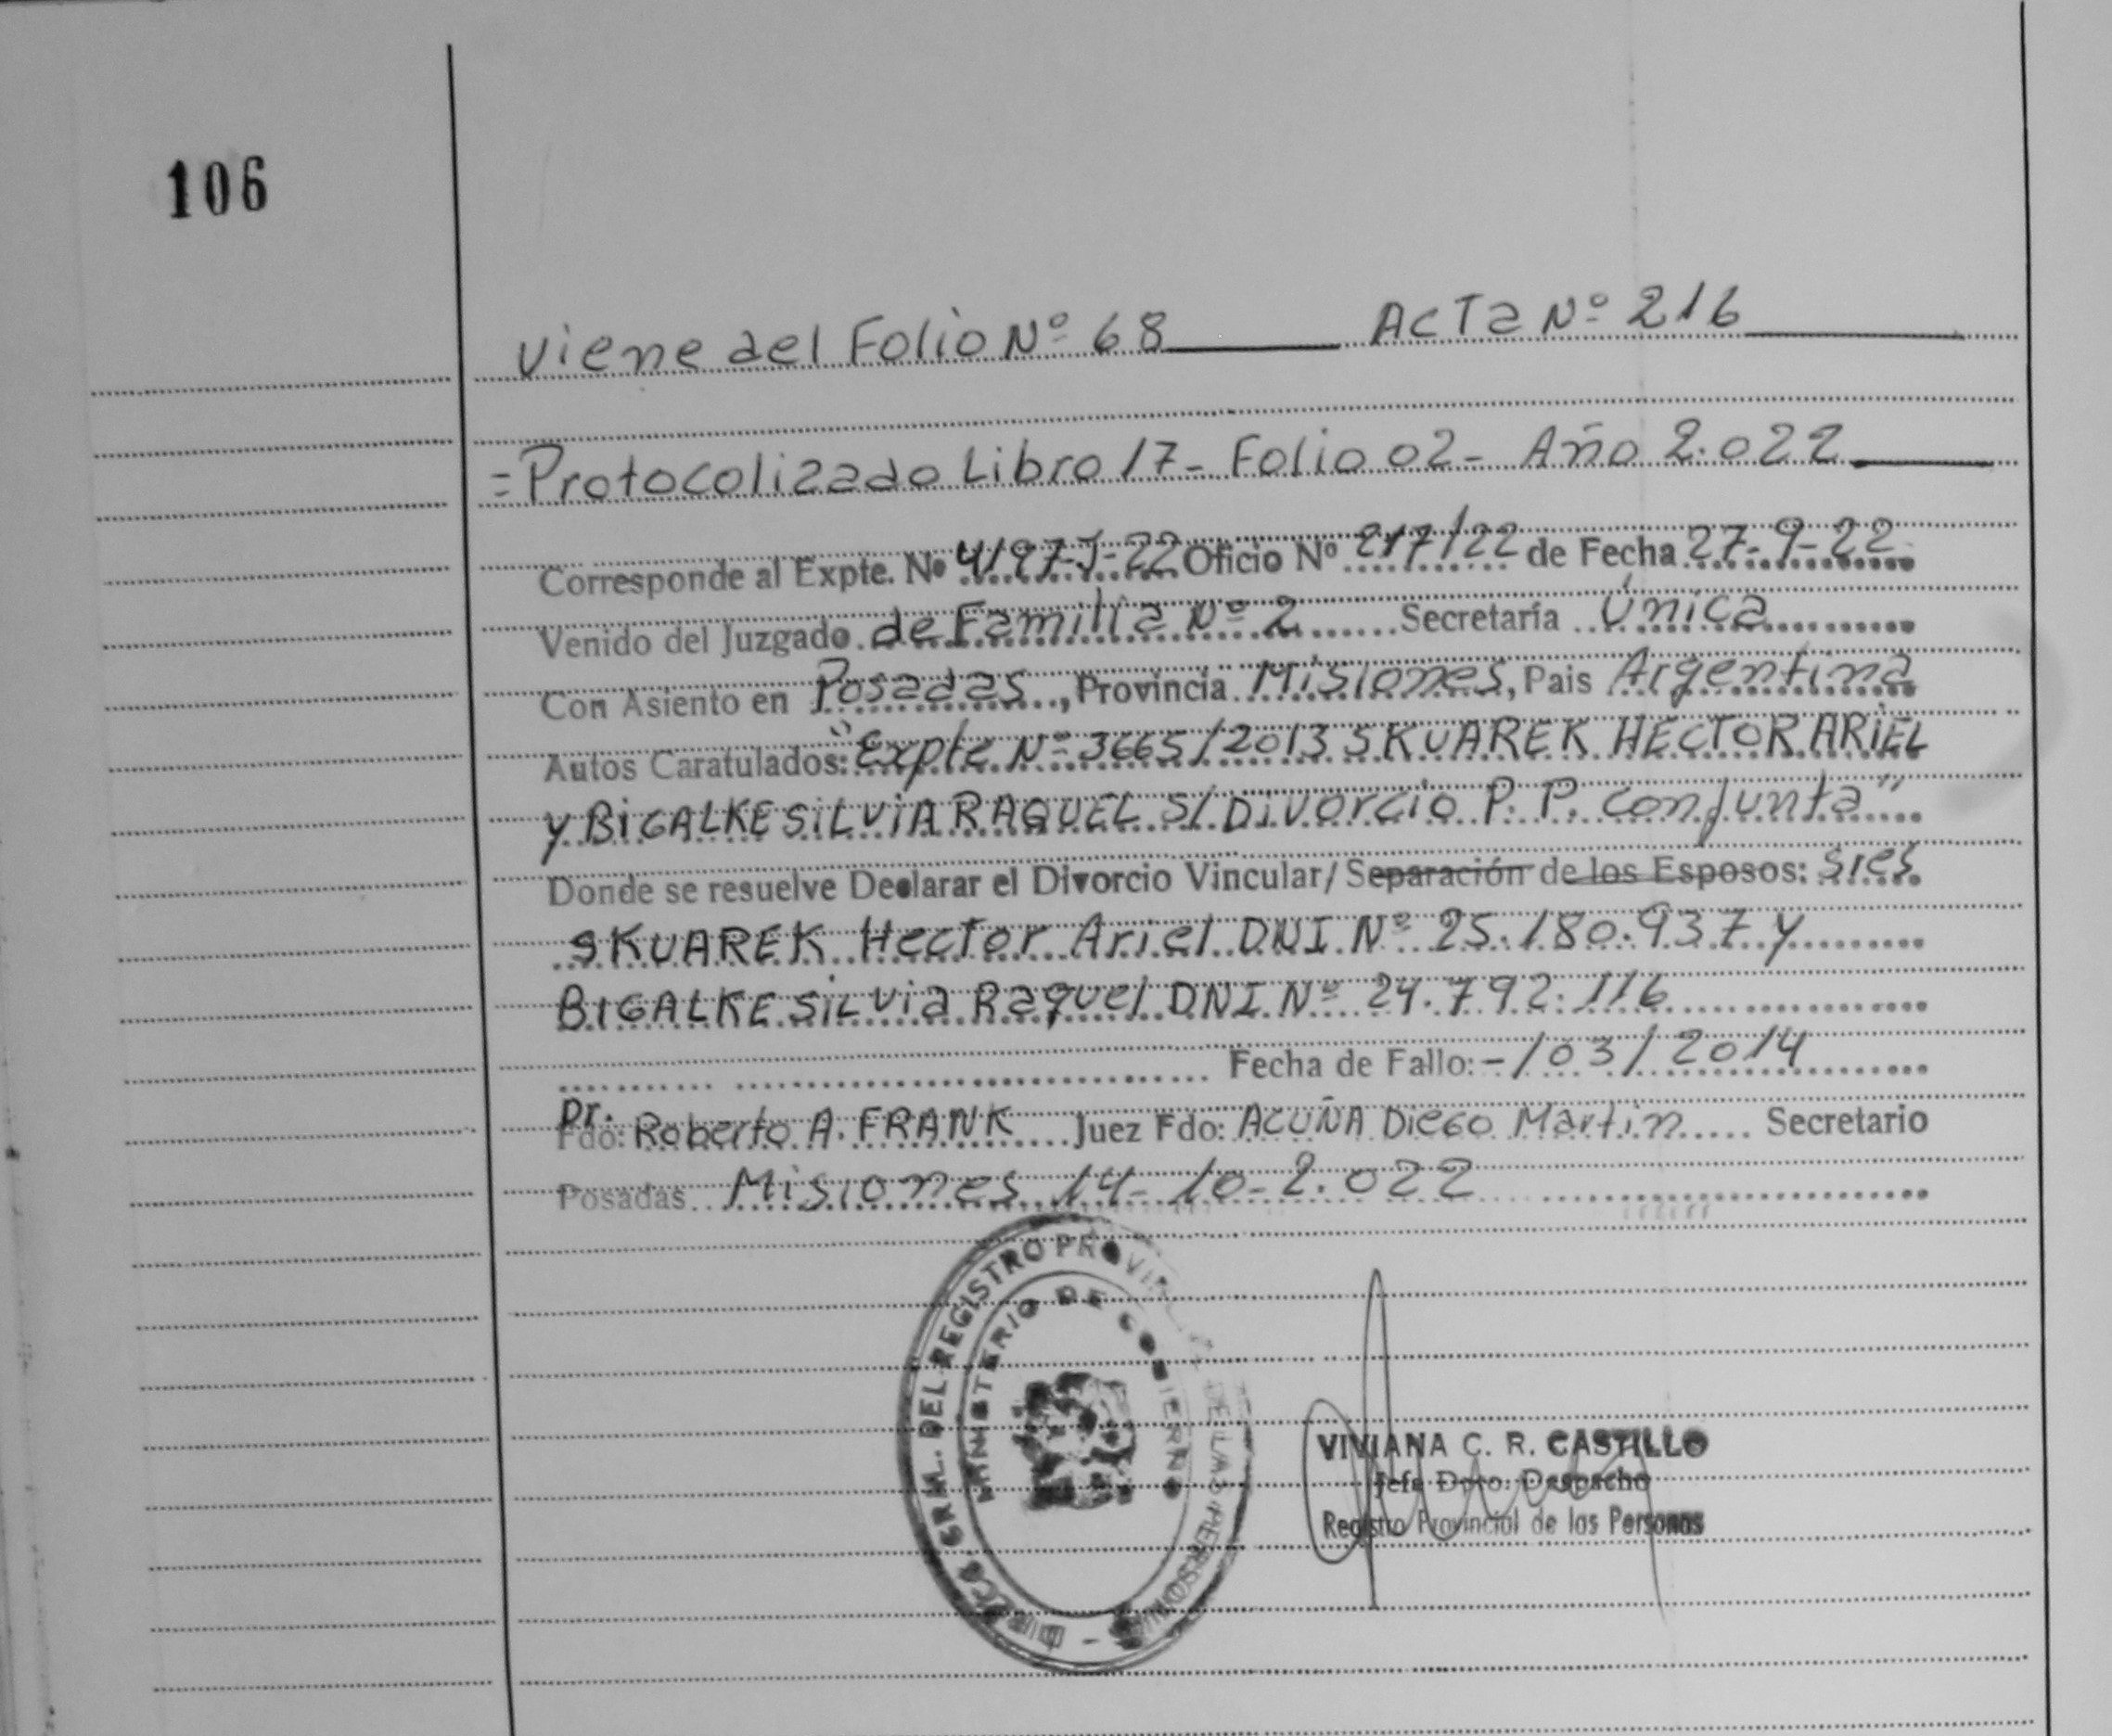 106
Viene del Folio Nº 68 Acta Nº 216
=Protocolizado Libro 17- Folio 02- Año 2.022
Corresponde al Expte. Nº 4197-J-22 Oficio Nº 217/22 de Fecha 27-9-22
Venido del Juzgado de Familia Nº 2 Secretaría Única
Con Asiento en Posadas, Provincia Misiones, Pais Argentina
Autos Caratulados: "Expte Nº 3665/2013 SKUAREK HECTOR ARIEL
y BIGALKE SILVIA RAQUEL S/ Divorcio P. P. Conjunta"
Donde se resuelve Declarar el Divorcio Vincular/ Separación de los Esposos: sres
SKUAREK Hector Ariel DNI Nº 25.180.937 y
BIGALKE Silvia Raquel DNI Nº 24.792.116
Fecha de Fallo: -/03/2014
Dr.
Fdo: Roberto A. FRANK Juez Fdo: ACUÑA Diego Martin Secretario
Posadas Misiones 14-10-2.022
DIREC. GRAL. DEL REGISTRO PROVINCIAL DE LAS PERSONAS -
MINISTERIO DE GOBIERNO
VIVIANA C. R. CASTILLO
Jefe Dpto. Despacho
Registro Provincial de las Personas